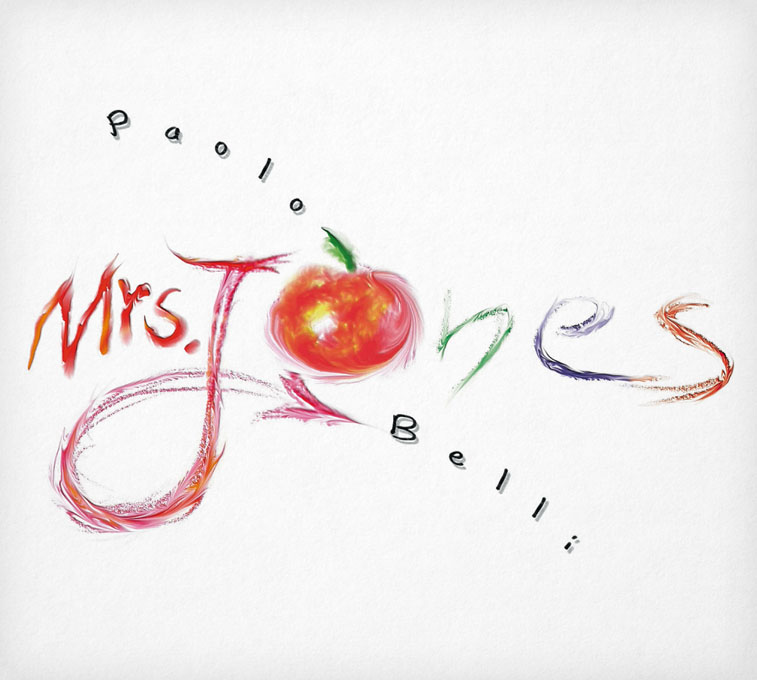 Paolo
Mrs. Jones
Belli